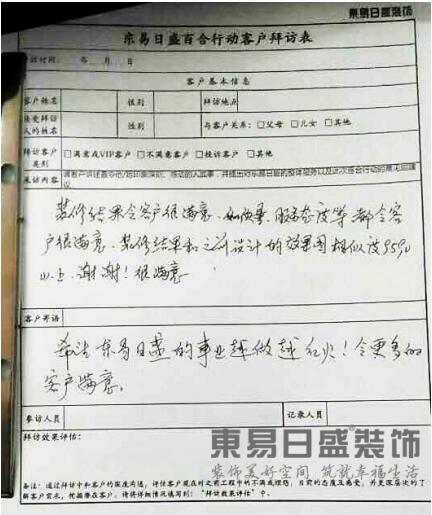 東易日盛装饰
东易日盛百合行动客户拜访表
拜访时间: 年 月 日
客户基本信息
客户姓名 性别 拜访地点
接受拜访人的姓名 性别 与客户关系:□父母 □儿女 □其他
拜访客户类别 □满意或VIP客户 □不满意客户 □投诉客户 □其他
拜访内容
装修结果令客户很满意.如质量.服务态度等都令客
户很满意.装修结果和之前设计的效果图相似度95%
以上.谢谢!很满意
客户寄语
希望东易日盛的事业越做越红火!令更多的
客户满意.
参访人员 记录人员
拜访效果评估:
東易日盛装饰
装饰美好空间 筑就幸福生活
备注:通过拜访中和客户的深度沟通,评估客户现在对之前工程中的不满或埋怨,目前的态度及感受,并更深层次的了
解客户需求,挖掘潜在客户。请将详细情况填写到:“拜访效果评估”中。